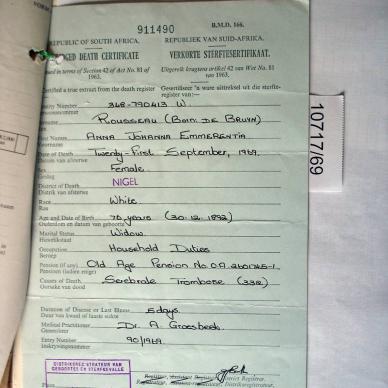 911490
B.M.D. 166.
REPUBLIC OF SOUTH AFRICA.
REPUBLIEK VAN SUID-AFRIKA.
DEATH CERTIFICATE
VERKORTE STERFTESERTIFIKAAT.
in terms of Section 42 of Act No. 81 of 1963.
Uitgereik kragtens artikel 42 van Wet No. 81 van 1963.
Certified a true extract from the death register
Gesertifiseer 'n ware uittreksel uit die sterfte-
register van:—
Identity Number 348-790413 W.
Persoonsnommer
ROUSSEAU (BORN DE BRUYN)
First Names ANNA JOHANNA EMMERENTIA
Voorname
Date of Death Twenty-First September, 1969.
Datum van afsterwe
Sex Female
Geslag
District of Death NIGEL
Distrik van afsterwe
Race White
Ras
Age and Date of Birth 76 years (30.12.1892)
Ouderdom en datum van geboorte
Marital Status Widow
Huwelikstaat
Occupation Household Duties
Beroep
Pension (if any) Old Age Pension No O.A.
Pensioen (indien enige)
Causes of Death Serebrale Trombose (332)
Oorsake van dood
Duration of Disease or Last Illness 5 days
Duur van kwaal of laaste siekte
Medical Practitioner Dr. A. Groesbeek
Geneesheer
Entry Number 90/1969
Inskrywingsnommer
District Registrar.
Distriksregistrateur.
DISTRIKSREGISTRATEUR VAN
GEBOORTES EN STERFGEVALLE
10717/69